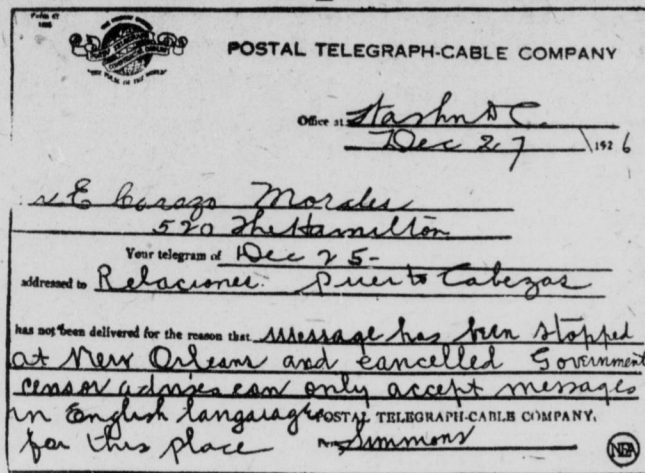 POSTAL TELEGRAPH-CABLE COMPANY
Office at Washn D C.
Dec 27 1926
E Carazo Morales
520 The Hamilton
Your telegram of Dec 25-
addressed to Relaciones. Puerto Cabezas
has not been delivered for the reason that message has been stopped
at New Orleans and cancelled Government
censor advises can only accept messages
in English language POSTAL TELEGRAPH-CABLE COMPANY.
for this place Per Simmons
NEA